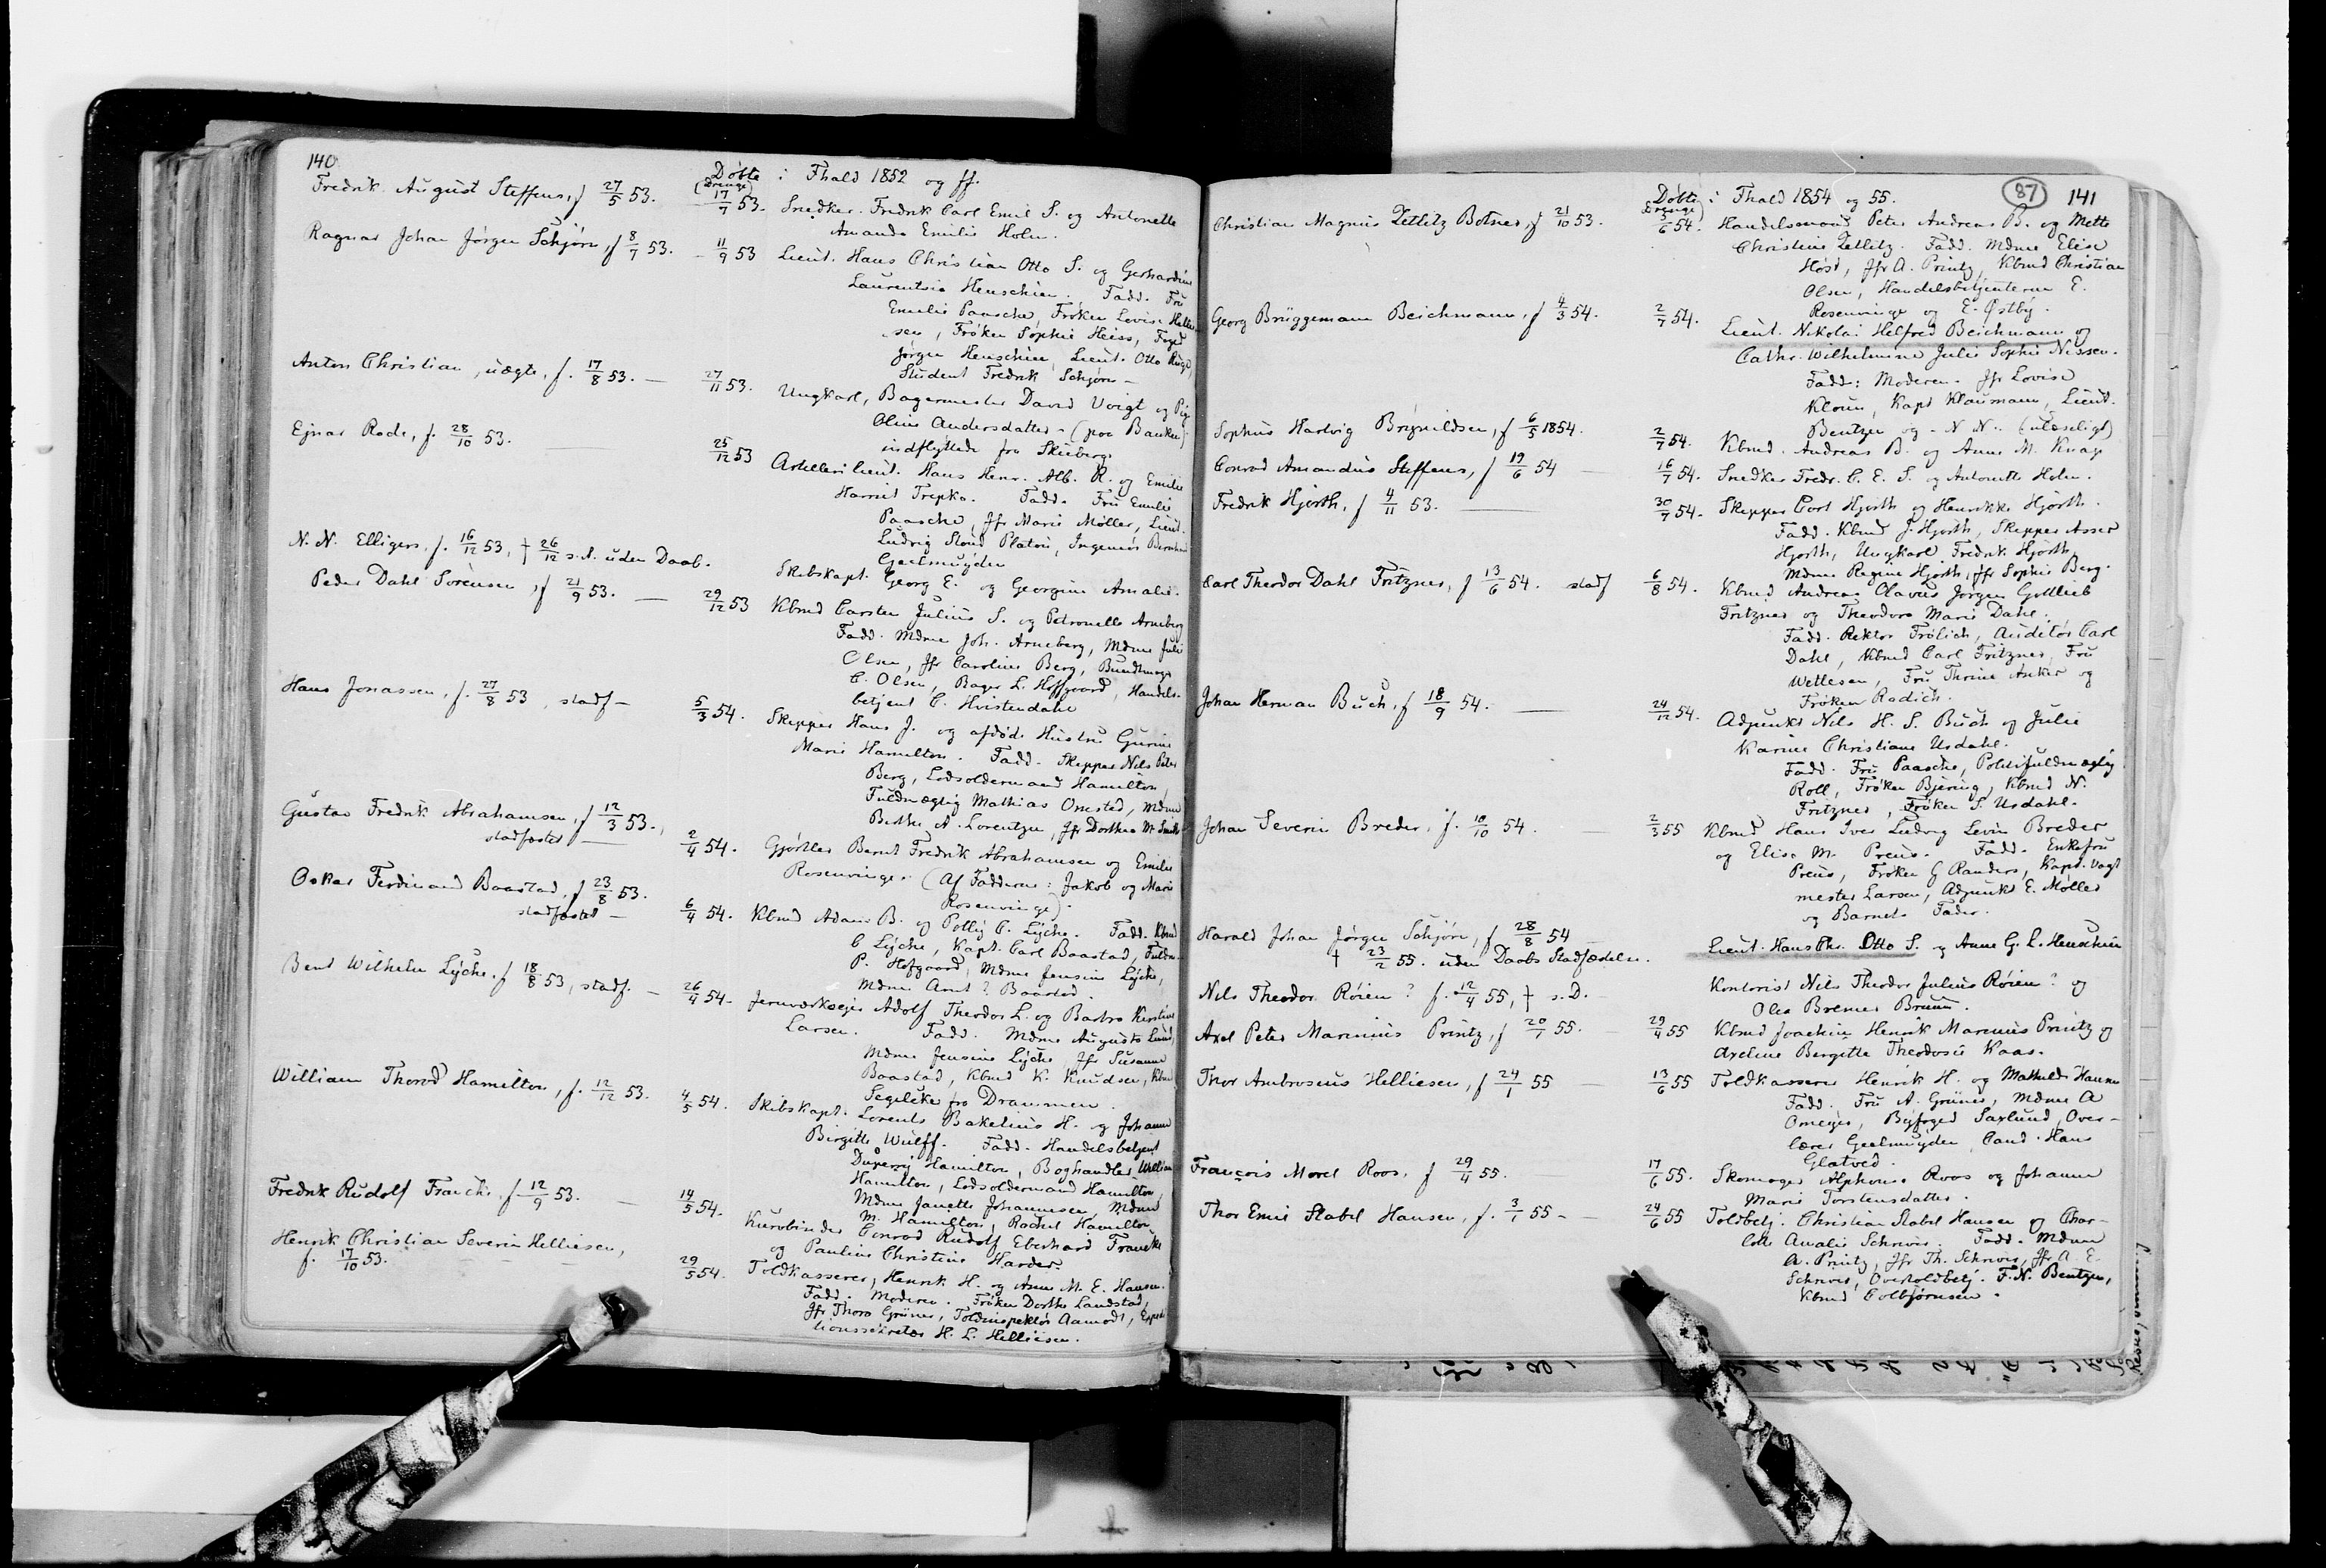 140
Døbte i Fhald 1852 og ff.
(Drenge)
Fredrik August Steffens, f 27/5 53. 17/7 53. Snedker Fredrik Carl Emil S. og Antonette
Amanda Emilie Holm.
Ragnar Johan Jørgen Schjørn, f 8/7 53. – 11/9 53 Lieut. Hans Christian Otto S. og Gerhardine
Laurentia Henschien. Fadd. Fru
Emilie Paasche, Frøken Lovise Hellie-
sen, Frøken Sophie Heiss, Foged
Jørgen Henschien, Lieut. Otto Ruge,
Student Fredrik Schjørn –
Anton Christian, uægte, f. 17/8 53. — 27/11 53. Ungkarl, Bagermester David Voigt og Pig
Oline Andersdatter – (paa Banken)
indflyttede fra Skieberg.
Ejnar Rode, f. 28/10 53. — 25/12 53 Artilleri lieut. Hans Henr. Alb. R. og Emilie
Harriet Trepka. Fadd. Fru Emilie
Paasche, Jfr Marie Møller, Lieut.
Ludvig Stoud Platou, Ingeniør Bernhard
Geelmuyden
N. N. Elligers, f. 16/12 53, † 26/12 s. A. uden Daab. Skibskapt. Georg E. og Georgine Amalie.
Peder Dahl Sørensen, f 21/9 53. — 29/12 53 Kbmd Carsten Julius S. og Petronelle Arneberg
Fadd. Mdme Joh. Arneberg, Mdme Julie
Olsen, Jfr Caroline Berg, Bundtmager
C. Olsen, Bager L. Hoffgaard, Handels-
betjent C. Hvistendahl
Hans Jonassen, f. 27/8 53, stadf – 5/3 54. Skipper Hans J. og afdøde Hustru Gurine
Marie Hamilton. Fadd. Skipper Nils Peter
Berg, Lodsoldermand Hamilton,
Fuldmægtig Mathias Omsted, Mdme
Berthe A. Lorentzen, Jfr Dorthea M. Smith
Gustav Fredrik Abrahamsen, f 12/3 53.,
stadfæstet — 2/4 54. Gjørtler Bernt Fredrik Abrahamsen og Emilie
Rosenvinge. (Af Fadderne: Jakob og Marie
Rosenvinge).
Oskar Ferdinand Baastad, f 23/8 53.
stadfæstet – 6/4 54. Kbmd Adam B. og Polly C. Lyche. Fadd. Kbmd
C Lyche, Kapt. Carl Baastad, Fuldm.
P. Hofgaard, Mdme Jensine Lyche,
Mdme Arnt? Baastad.
Bent Wilhelm Lyche, f 18/8 53, stadf. – 26/4 54 – Jernværkseier Adolf Theodor L. og Barbra Kirstine
Larsen. Fadd. Mdme Augusta Lund,
Mdme Jensine Lyche, Jfr Susanne
Baastad, Kbmd K. Knudsen, Kbmd
Segelcke fra Drammen.
William Thorod Hamilton, f. 12/12 53. 4/5 54. Skibskapt. Lorents Bakelius H. og Johanne
Birgitte Wulff. Fadd. Handelsbetjent
Duperrij Hamilton, Boghandler William
Hamilton, Lodsoldermand Hamilton,
Mdme Janette Johannesen, Mdme
M. Hamilton, Rachel Hamilton
Fredrik Rudolf Francke, f. 12/9 53. — 14/5 54. Kurvbinder Conrad Rudolf Eberhard Francke
og Pauline Christine Harder.
Henrik Christian Severin Helliesen,
f. 17/10 53. 29/5 54. Toldkasserer, Henrik H. og Anne M. E. Hansen.
Fadd. Moderen. Frøken Dorthe Landstad,
Jfr Thora Grüner, Toldinspektør Aamodt, Expedi-
tionssekretær H. L. Helliesen.
87 141
Døbte i Fhald 1854 og 55.
(Drenge)
Christian Magnus Zetlitz Botner, f 21/10 53. /6 54. Handelsmand Peter Andreas B. og Mette
Christine Zetlitz. Fadd. Mdme Elise
Høst, Jfr A. Printz, Kbmd Christian
Olsen, Handelsbetjenterne E.
Rosenvinge og E. Østby.
Georg Brüggemann Beichmann, f 4/3 54. 2/7 54. Lieut. Nikolai Helfred Beichmann og
Cathr. Wilhelmine Julie Sophie Nissen.
Fadd: Moderen. Jfr Lovise
Kloum, Kapt Klaumann, Lieut.
Bentzen og – N N. (ulæseligt)
Sophus Hartvig Brynildsen, f 6/5 1854. 2/7 54. Kbmd. Andreas B. og Anne M. Knap
Conrad Amandus Steffens, f 19/6 54 — 16/7 54. Snedker Fredr. C. E. S. og Antonette Holm.
Fredrik Hjorth, f 4/11 53. — 30/7 54. Skipper Cort Hjorth og Henrikke Hjorth.
Fadd. Kbmd J. Hjorth, Skipper Asser
Hjorth, Ungkarl Fredrik Hjorth,
Mdme Regine Hjorth, Jfr Sophie Berg.
Carl Theodor Dahl Fritzner, f 13/6 54. stadf 6/8 54. Kbmd Andreas Olavus Jørgen Gottlieb
Fritzner og Theodora Marie Dahl.
Fadd. Rektor Frølich, Auditør Carl
Dahl, Kbmd Carl Fritzner, Fru
Wettlesen, Fru Thrine Anker og
Frøken Radich.
Johan Herman Buch, f 18/9 54. — 24/12 54. Adjunkt Nils H. S. Buch og Julie
Karine Christiane Usdahl.
Fadd. Fru Paasche, Politifuldmægtig
Roll, Frøken Bjering, Kbmd N.
Fritzner, Frøken S. Usdahl.
Johan Severin Breder, f. 10/10 54. — 2/3 55 Kbmd Hans Iver Ludvig Levin Breder
og Elise M. Preus. Fadd. Enkefru
Preus, Frøken G Randers, Kapt. Vagt
mester Larsen, Adjunkt E. Møller
og Barnets Fader.
Harald Johan Jørgen Schjørn, f 28/8 54 — Lieut. Hans Chr. Otto S. og Anne G. L. Henschien
† 23/2 55. uden Daabs Stadfæstelse.
Nils Theodor Røien? f. 12/4 55, † s. D. Kontorist Nils Theodor Julius Røien? og
Olea Bremer Bruun.
Axel Peter Marinius Printz, f 20/1 55. — 29/4 55 Kbmd Joachim Henrik Marinius Printz og
Axeline Bergitte Theodosie Kaas.
Thor Ambrosius Helliesen, f 24/1 55 — 13/6 55 Toldkasserer Henrik H. og Mathilde Hansen
Fadd. Fru A. Grüner, Mdme A
Omeyer, Byfoged Saxlund, Over-
lærer Geelmuyden, Cand. Hans
Glatved.
François Morel Roos, f 29/4 55. 17/6 55. Skomager Alphonse Roos og Johanne
Marie Torstensdatter.
Thor Emil Stabel Hansen, f. 3/1 55 – — 24/6 55 Toldbetj. Christian Stabel Hansen og Char-
lotte Amalie Schriver. Fadd. Mdme
A. Printz, Jfr Th. Schriver, Jfr A. E.
Schriver, Overtoldbetj. F. N. Bentzen,
Kbmd Colbjørnsen.